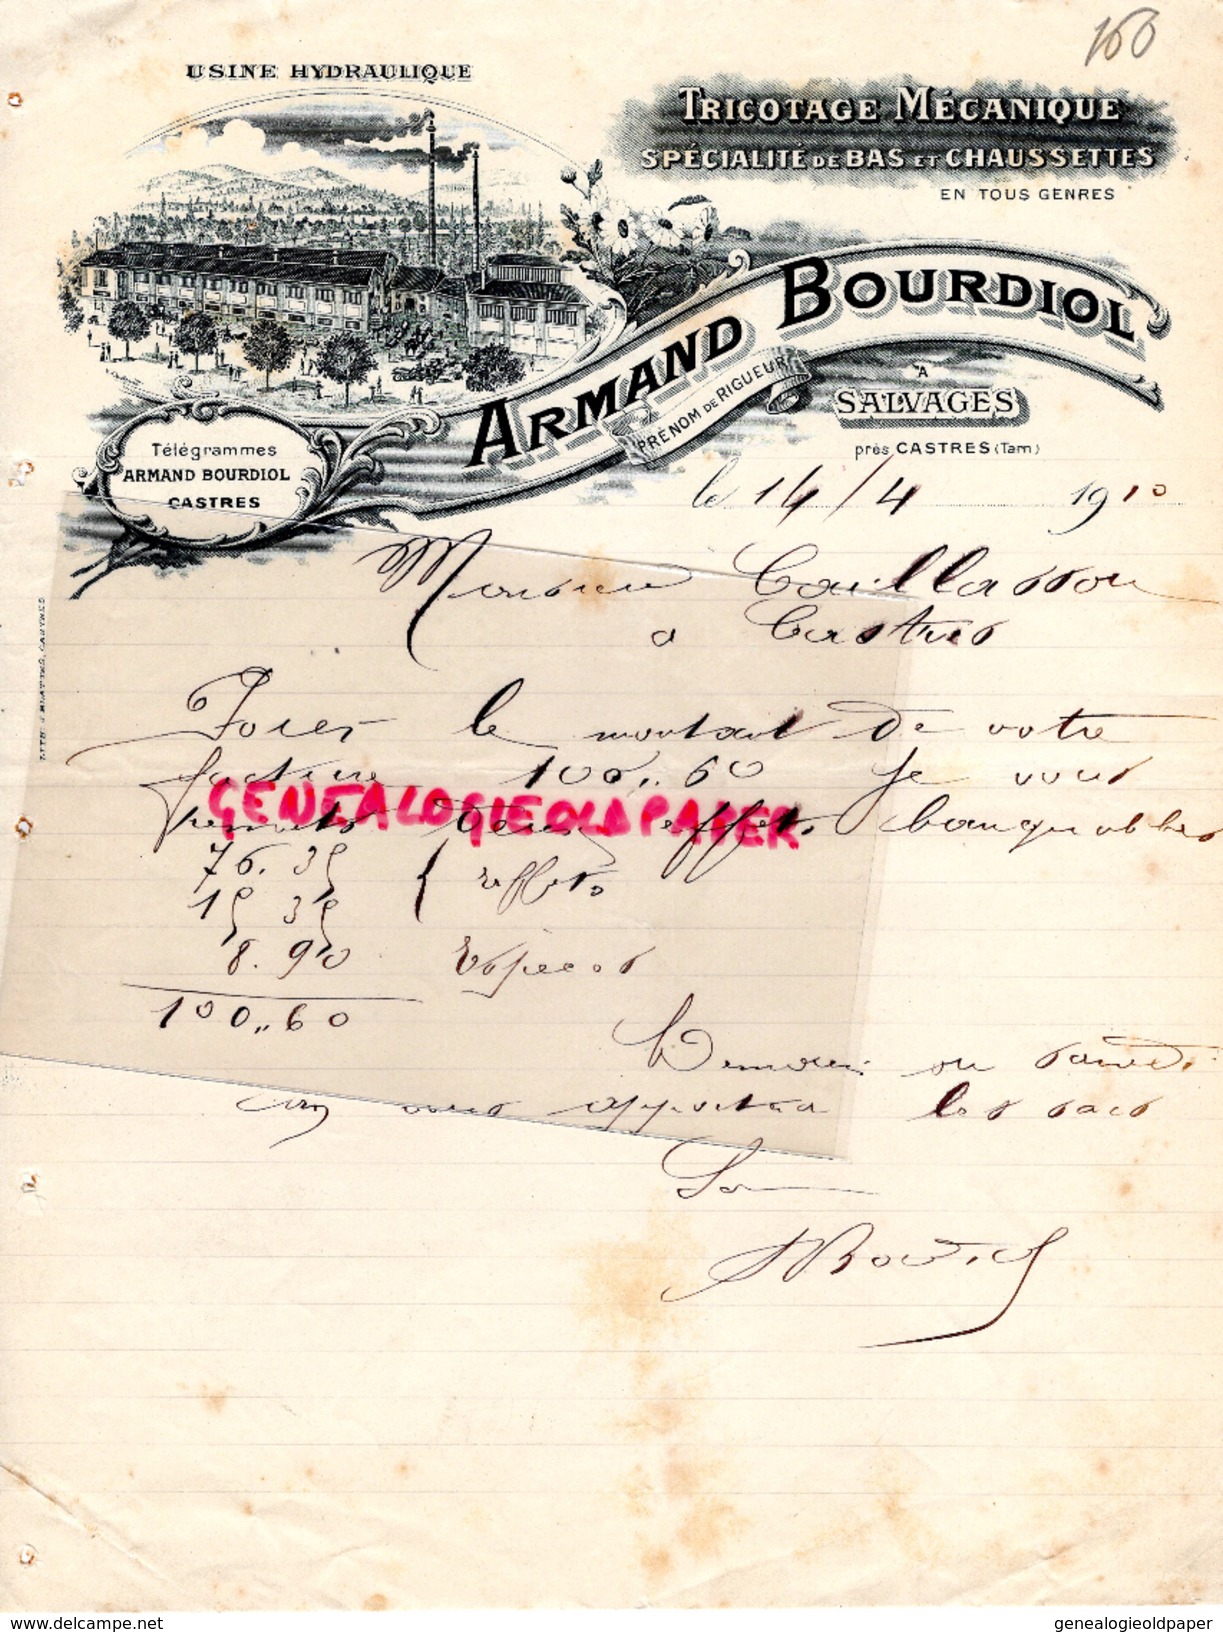 160
USINE HYDRAULIQUE
TRICOTAGE MÉCANIQUE
SPÉCIALITÉ DE BAS ET CHAUSSETTES
EN TOUS GENRES
ARMAND BOURDIOL
PRÉNOM DE RIGUEUR
A
SALVAGES
près CASTRES (Tarn)
Télégrammes
ARMAND BOURDIOL
CASTRES
le 14/4 1910
Monsieur
a Castres
le montant de votre
facture 100,,60 je vous
remets deux effets banquables
GENEALOGIEOLDPAPER
76.35
15 35 effets
8.90 espèces
100,,60
ou
vous apportera les sacs
delcampe.net
genealogieoldpaper